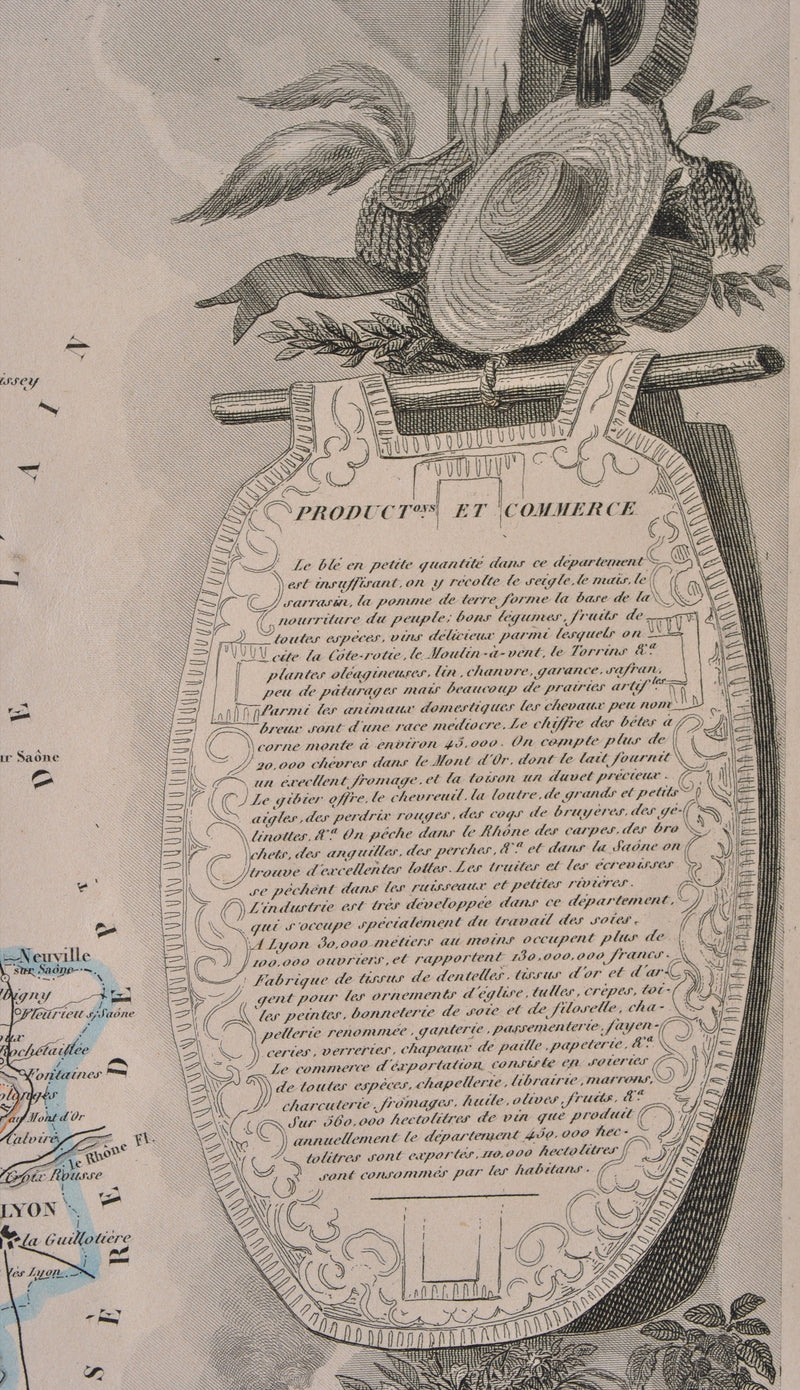 issey
A I N
L'
DE
DÉPT
ur Saône
Neuville
sur Saône
Fleurieu s/Saône
Rochetaillée
Fontaines
au Mont d'Or
Caluire
le Rhône Fl.
Croix Rousse
LYON
la Guillotière
lès Lyon
I S È R E
PRODUCTons ET COMMERCE
Le blé en petite quantité dans ce département
est insuffisant, on y récolte le seigle, le maïs, le
sarrasin, la pomme de terre forme la base de la
nourriture du peuple; bons légumes, fruits de
toutes espèces, vins délicieux parmi lesquels on
cite la Côte-rotie, le Moulin-à-vent, le Torrins &a
plantes oléagineuses, lin, chanvre, garance, safran,
peu de pâturages mais beaucoup de prairies artifles
Parmi les animaux domestiques les chevaux peu nom
breux sont d'une race médiocre. Le chiffre des bêtes à
corne monte à environ 45.000. On compte plus de
20.000 chèvres dans le Mont d'Or, dont le lait fournit
un excellent fromage, et la toison un duvet précieux.
Le gibier offre, le chevreuil, la loutre, de grands et petits
aigles, des perdrix rouges, des coqs de bruyères, des gé-
linottes, &a On pêche dans le Rhône des carpes, des bro
chets, des anguilles, des perches, &a et dans la Saône on
trouve d'excellentes lottes. Les truites et les écrevisses
se pêchent dans les ruisseaux et petites rivières.
L'industrie est très développée dans ce département,
qui s'occupe spécialement du travail des soies,
A Lyon 30,000 métiers au moins occupent plus de
100,000 ouvriers, et rapportent 130,000,000 francs.
Fabrique de tissus de dentelles, tissus d'or et d'ar-
gent pour les ornements d'église, tulles, crêpes, toi-
les peintes, bonneterie de soie et de filoselle, cha-
pellerie renommée, ganterie, passementerie, fayen-
ceries, verreries, chapeaux de paille, papeterie, &a
Le commerce d'exportation consiste en soieries
de toutes espèces, chapellerie, librairie, marrons,
charcuterie, fromages, huile, olives, fruits, &a
Sur 360.000 hectolitres de vin que produit
annuellement le département 450.000 hec-
tolitres sont exportés, 110.000 hectolitres
sont consommés par les habitans.